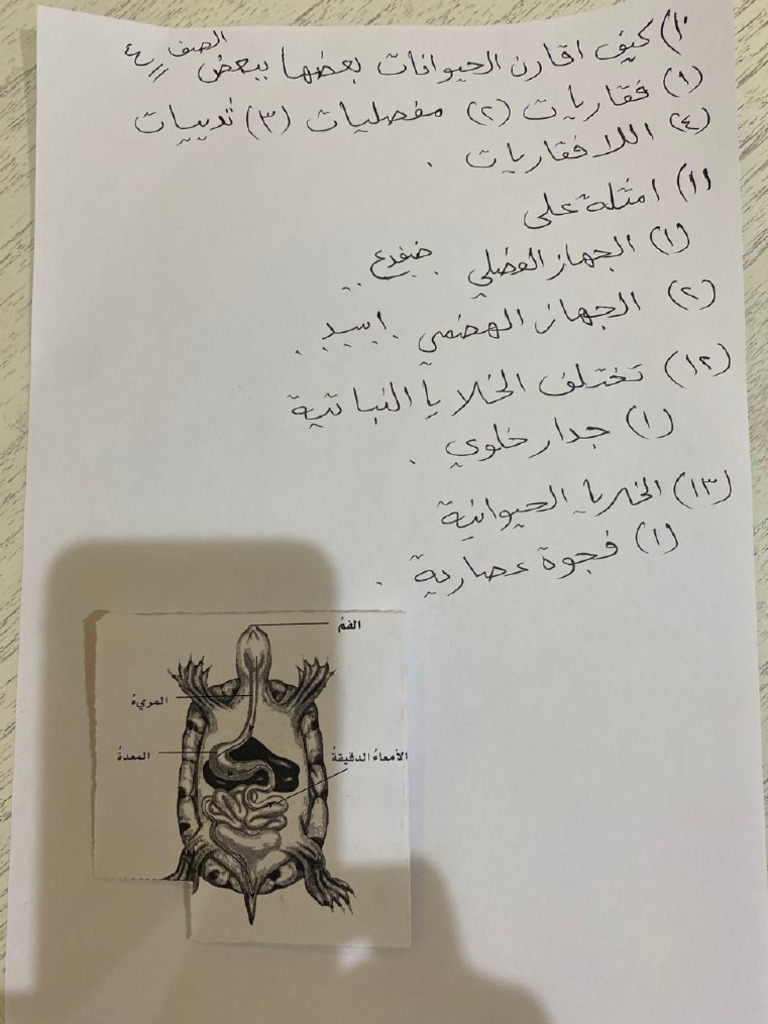 ١٠) كيف اقارن الحيوانات بعضها ببعض الصف ٤
(١) فقاريات (٢) مفصليات (٣) ثدييات
(٤) اللافقاريات .
١١) امثلة على
(١) الجهاز العضلي ضفدع
(٢) الجهاز الهضمي .
(١٢) تختلف الخلايا النباتية
(١) جدار خلوي .
(١٣) الخلايا الحيوانية
(١) فجوة عصارية .
الفم
المريء
المعدة
الأمعاء الدقيقة